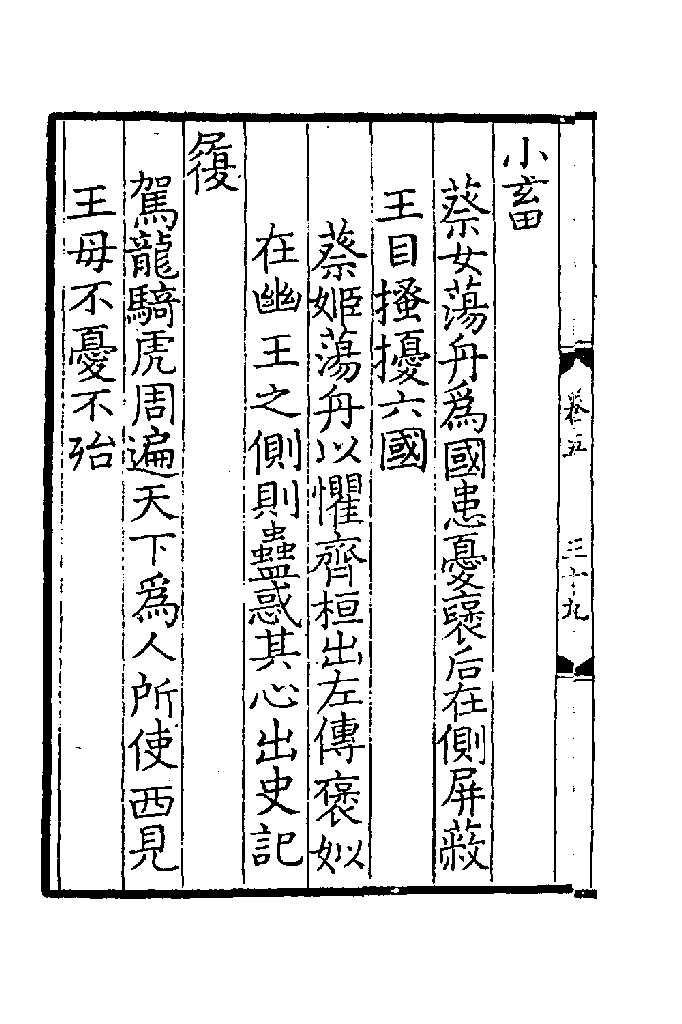 小畜
蔡女蕩舟爲國患憂褒后在側屏蔽
王目搔擾六國
蔡姬蕩舟以懼齊桓出左傳褒姒
在幽王之側則蠱惑其心出史記
履
駕龍騎虎周遍天下爲人所使西見
王母不憂不殆
卷五
三十九